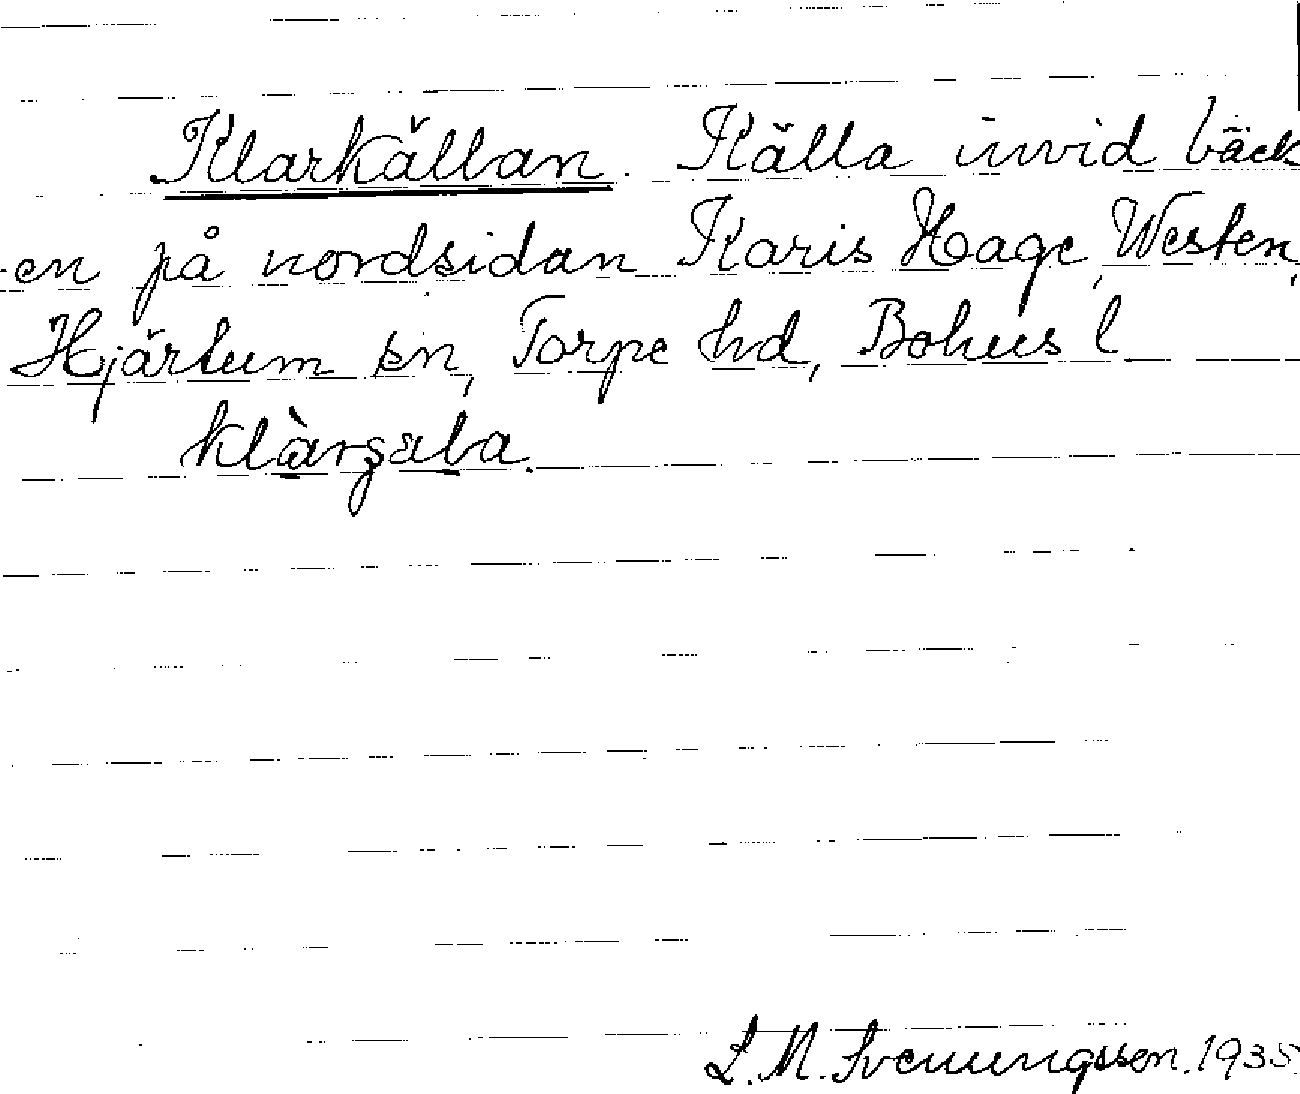 Klarkällan. Källa invid bäck
-en på nordsidan Karis Hage, Westen,
Hjärtum sn, Torpe hd, Bohus l
klàrʒaba.
L. M. Svenungsson. 1935.